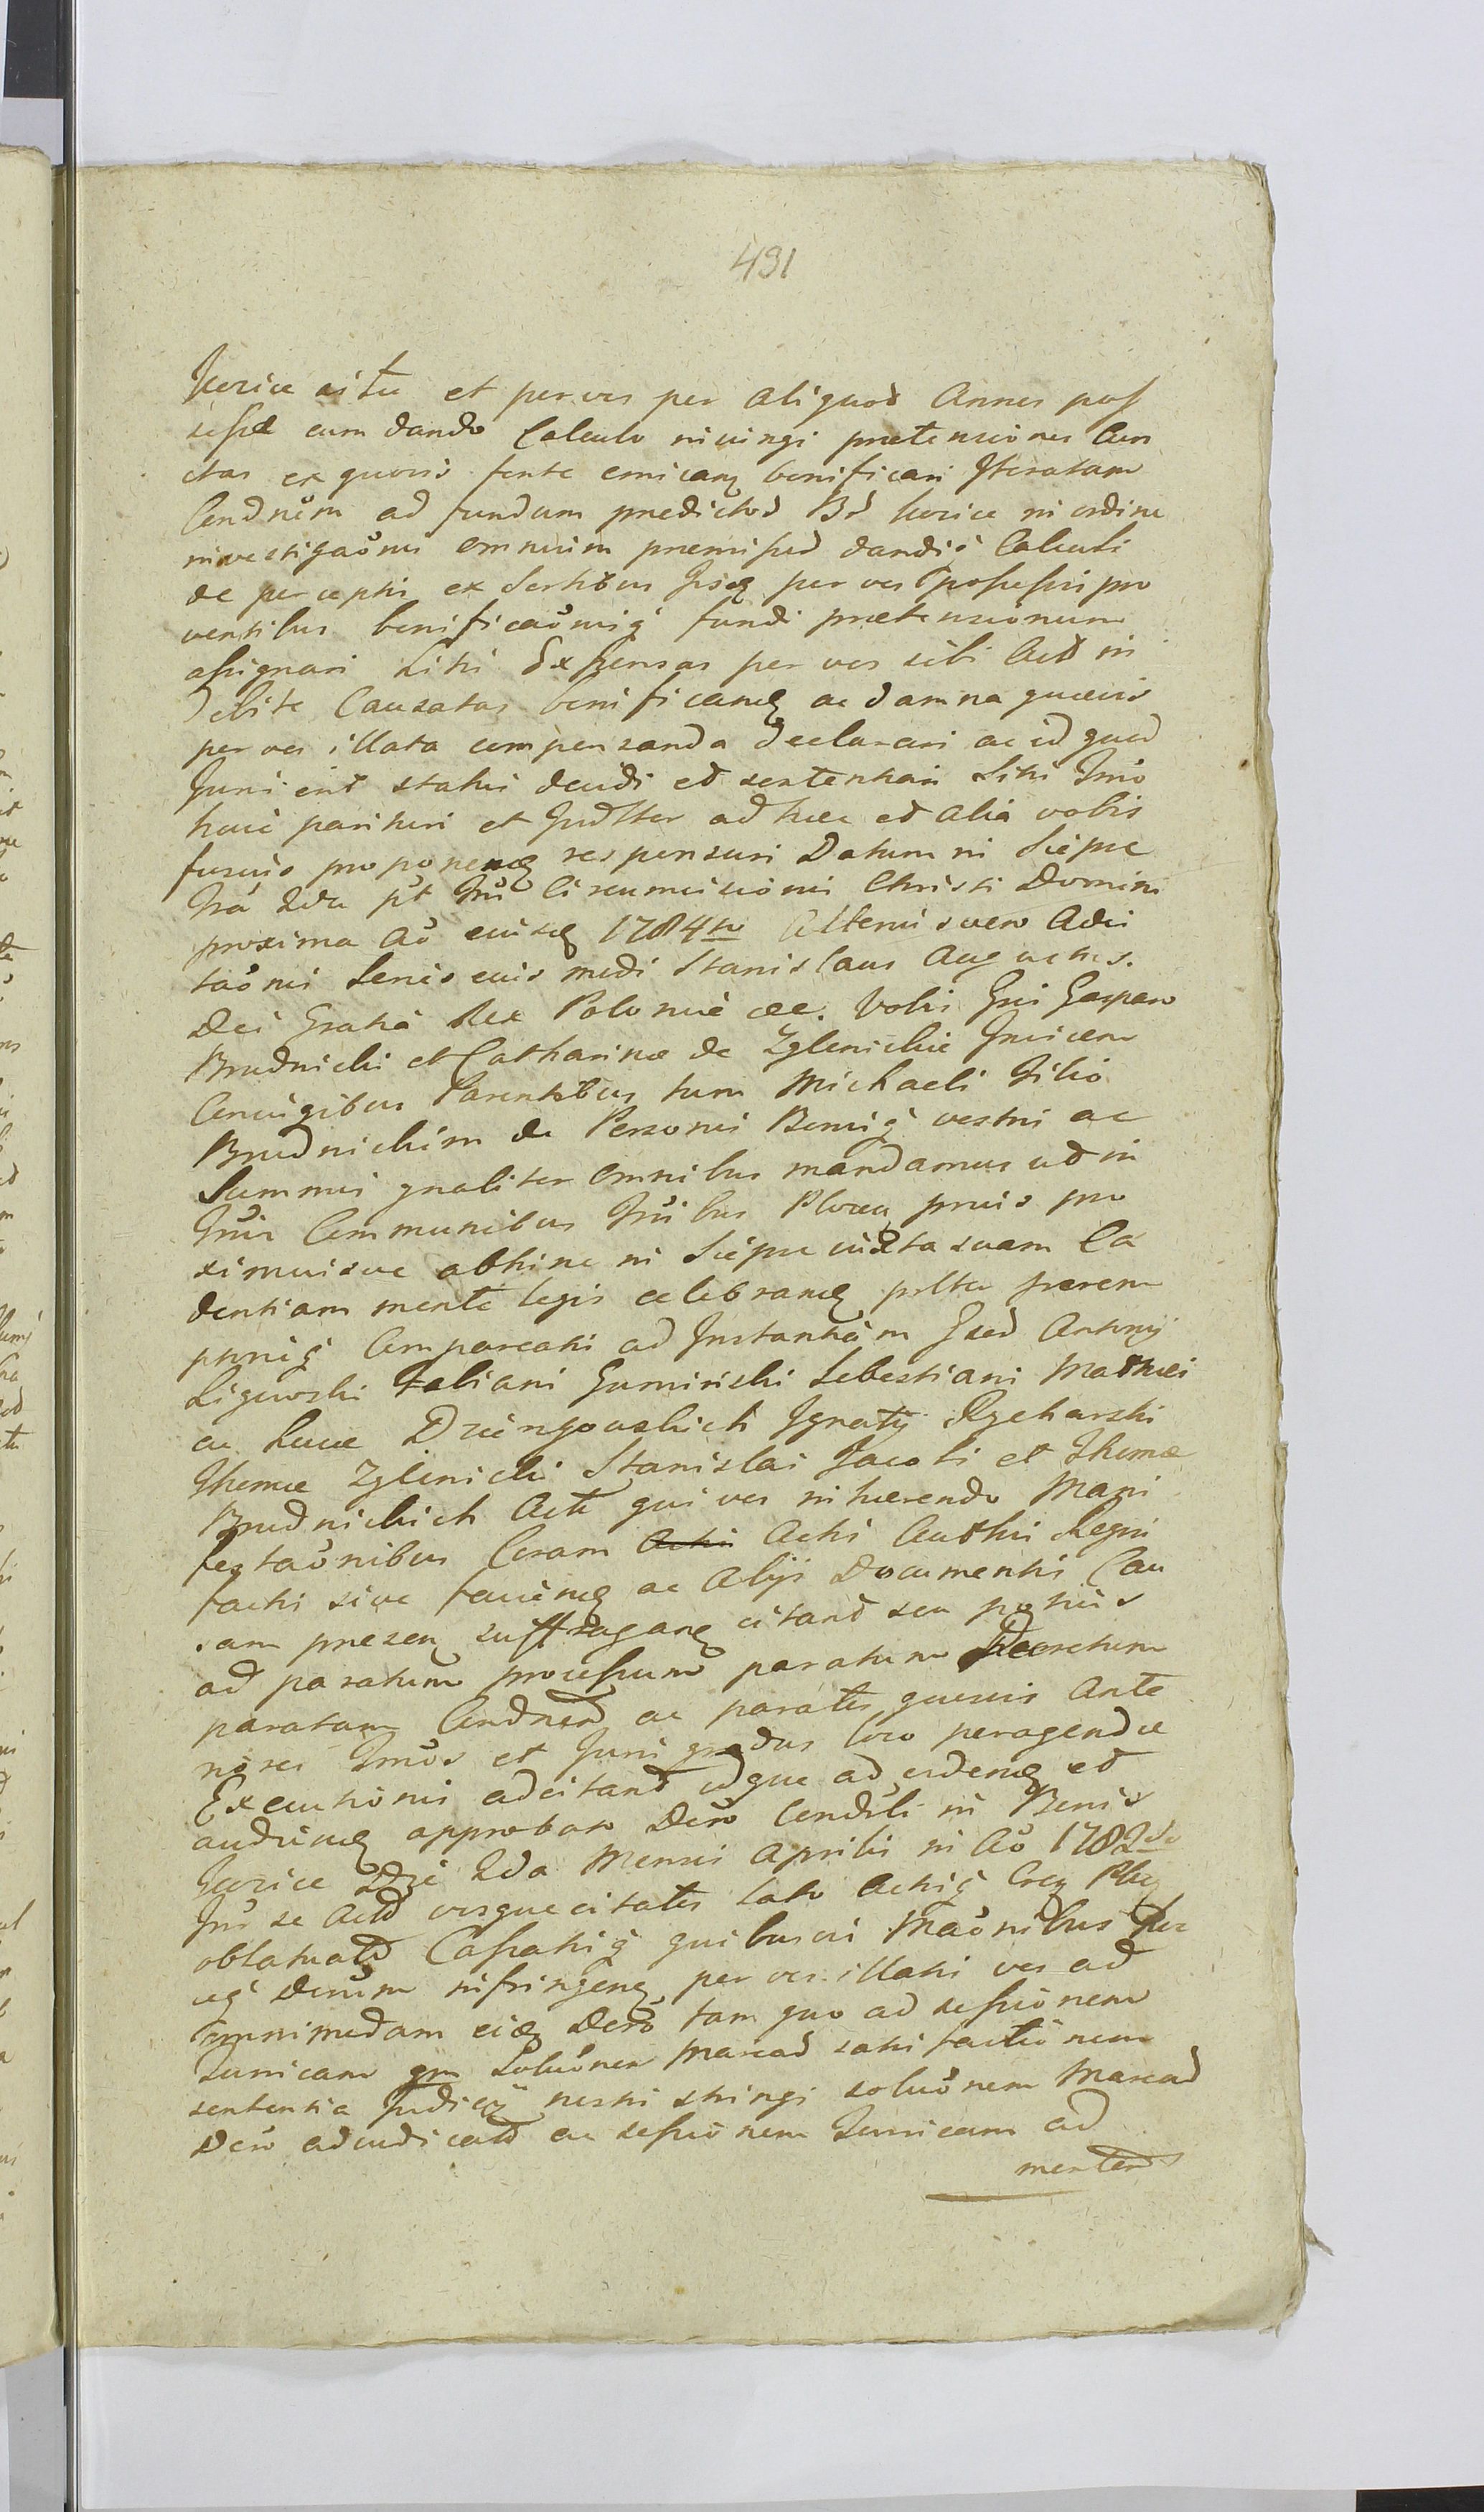 491
Jurice sitae et per vos per aliquod Annos pos
sessae cum dando Calculo niungi praetensiones Cun
ctas ex quovis fonte emican bonificari Iteratam
Condnem ad fundum praedictod Bd Jurice in ordine
investigaonis omnium praemissod dandiq Calculi
de perceptis ex Sortibus per vos possessis pro
ventibus bonificaonisq fundi praetensionum
assignari Litis Expensas per vos sibi Actt in
Debite Causatas bonificand ac damna quaevis
per vos illata compensanda declarari ac id quod
Juris erit statui decidi et sententiari Litis Tmo
huic parituri et Judltter ad haec et alia vobis
fusius proponend responsuri Datum in Siepre
fra 2da pt fm Circumcisionis Christi Domini
proxima Ao eiusd 1784to Alterius vero Adci
taonis tenor eius modi Stanislaus Augustus.
Dei Gratia Rex Poloniae etc. Vobis Gsis Gasparo
Brudnicki et Catharinae de Zglenickie Invicem
Coniugibus Parentibus tum Michaeli Filio
Brudnickim de Personis Bonisq vestris ac
Summis gnaliter omnibus mandamus ut in
Tmis Communibus Tris lbus Plocen prius pro
ximisive abhinc in Siepre iuxta suam Ca
dentiam mente legis celebrand pltter perem
ptrieq Compareatis ad Instantiam Gsod Antonij
Ligowski Fabiani Guminski Sebestiani Mathaei
ac Lucae Dziengowskich Ignatij Rycharski
Thomae Zglinicki Stanislai Jacobi et Thomae
Brudnickich Actt qui vos inhaerendo Mani
festaonibus Coram Actis Actis Authcis Regni
factis sive faciend ac Alijs Documentis Cau
sam praesen suffragan citant seu potius
ad paratum processum paratum Decretum
paratam Condnem ac paratos quosvis Ante
riores Tmos et Juris gradus loco peragendae
Executionis adcitant idque ad vidend et
audiend approbari Dcro Condsli in Bonis
Jurice 2da Mensis Aprilis in Ao 1782do
Inter se Actt vosque citatos lato Actisq Cren Plocen
oblatuatt Cassatisq quibusvis Maonibus per
usq Dcrum infringen per vos illatis vos ad
omnimodam eius Dcro tam quo ad sessionem
Turricam qm Soluonem Marcad satisfactionem
sententia Judicij nostri stringi soluonem Marcad
Dcro adiudicatt ac sessionem Turricam ad
mentem